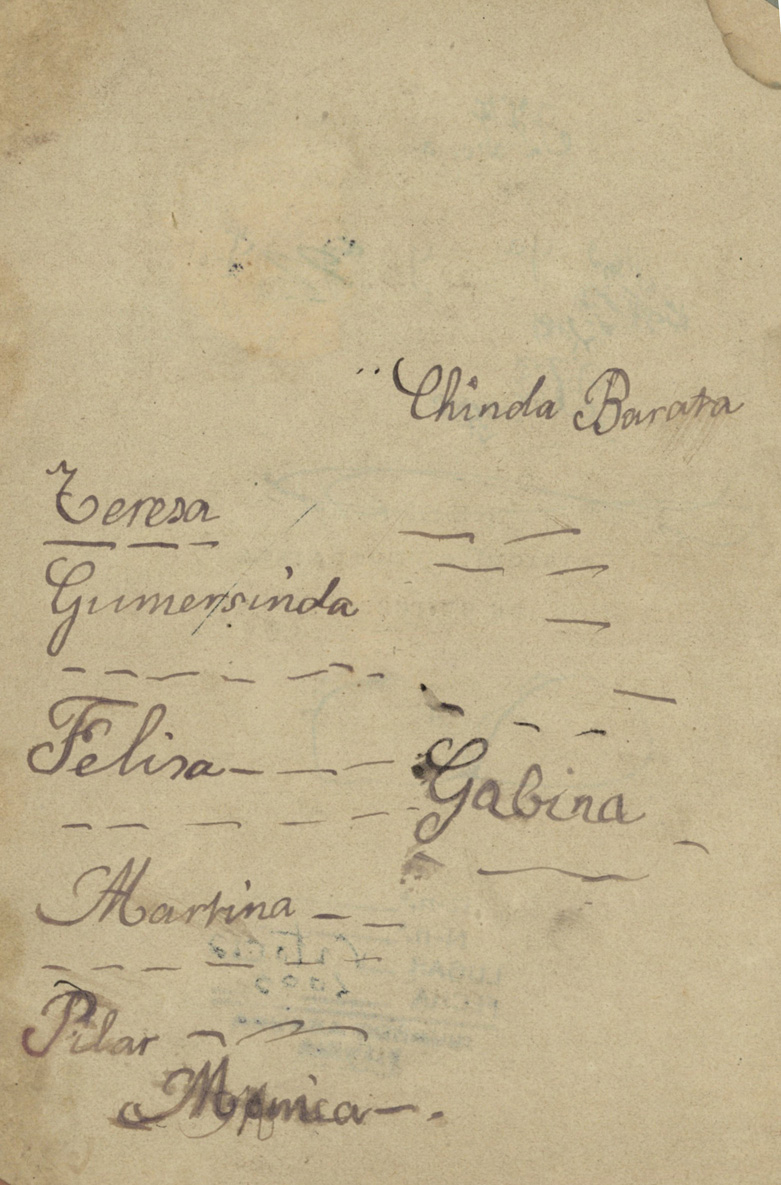 Chinda Barata
Teresa
Gumersinda
Felisa
Gabina
Martina
Pilar
Monica